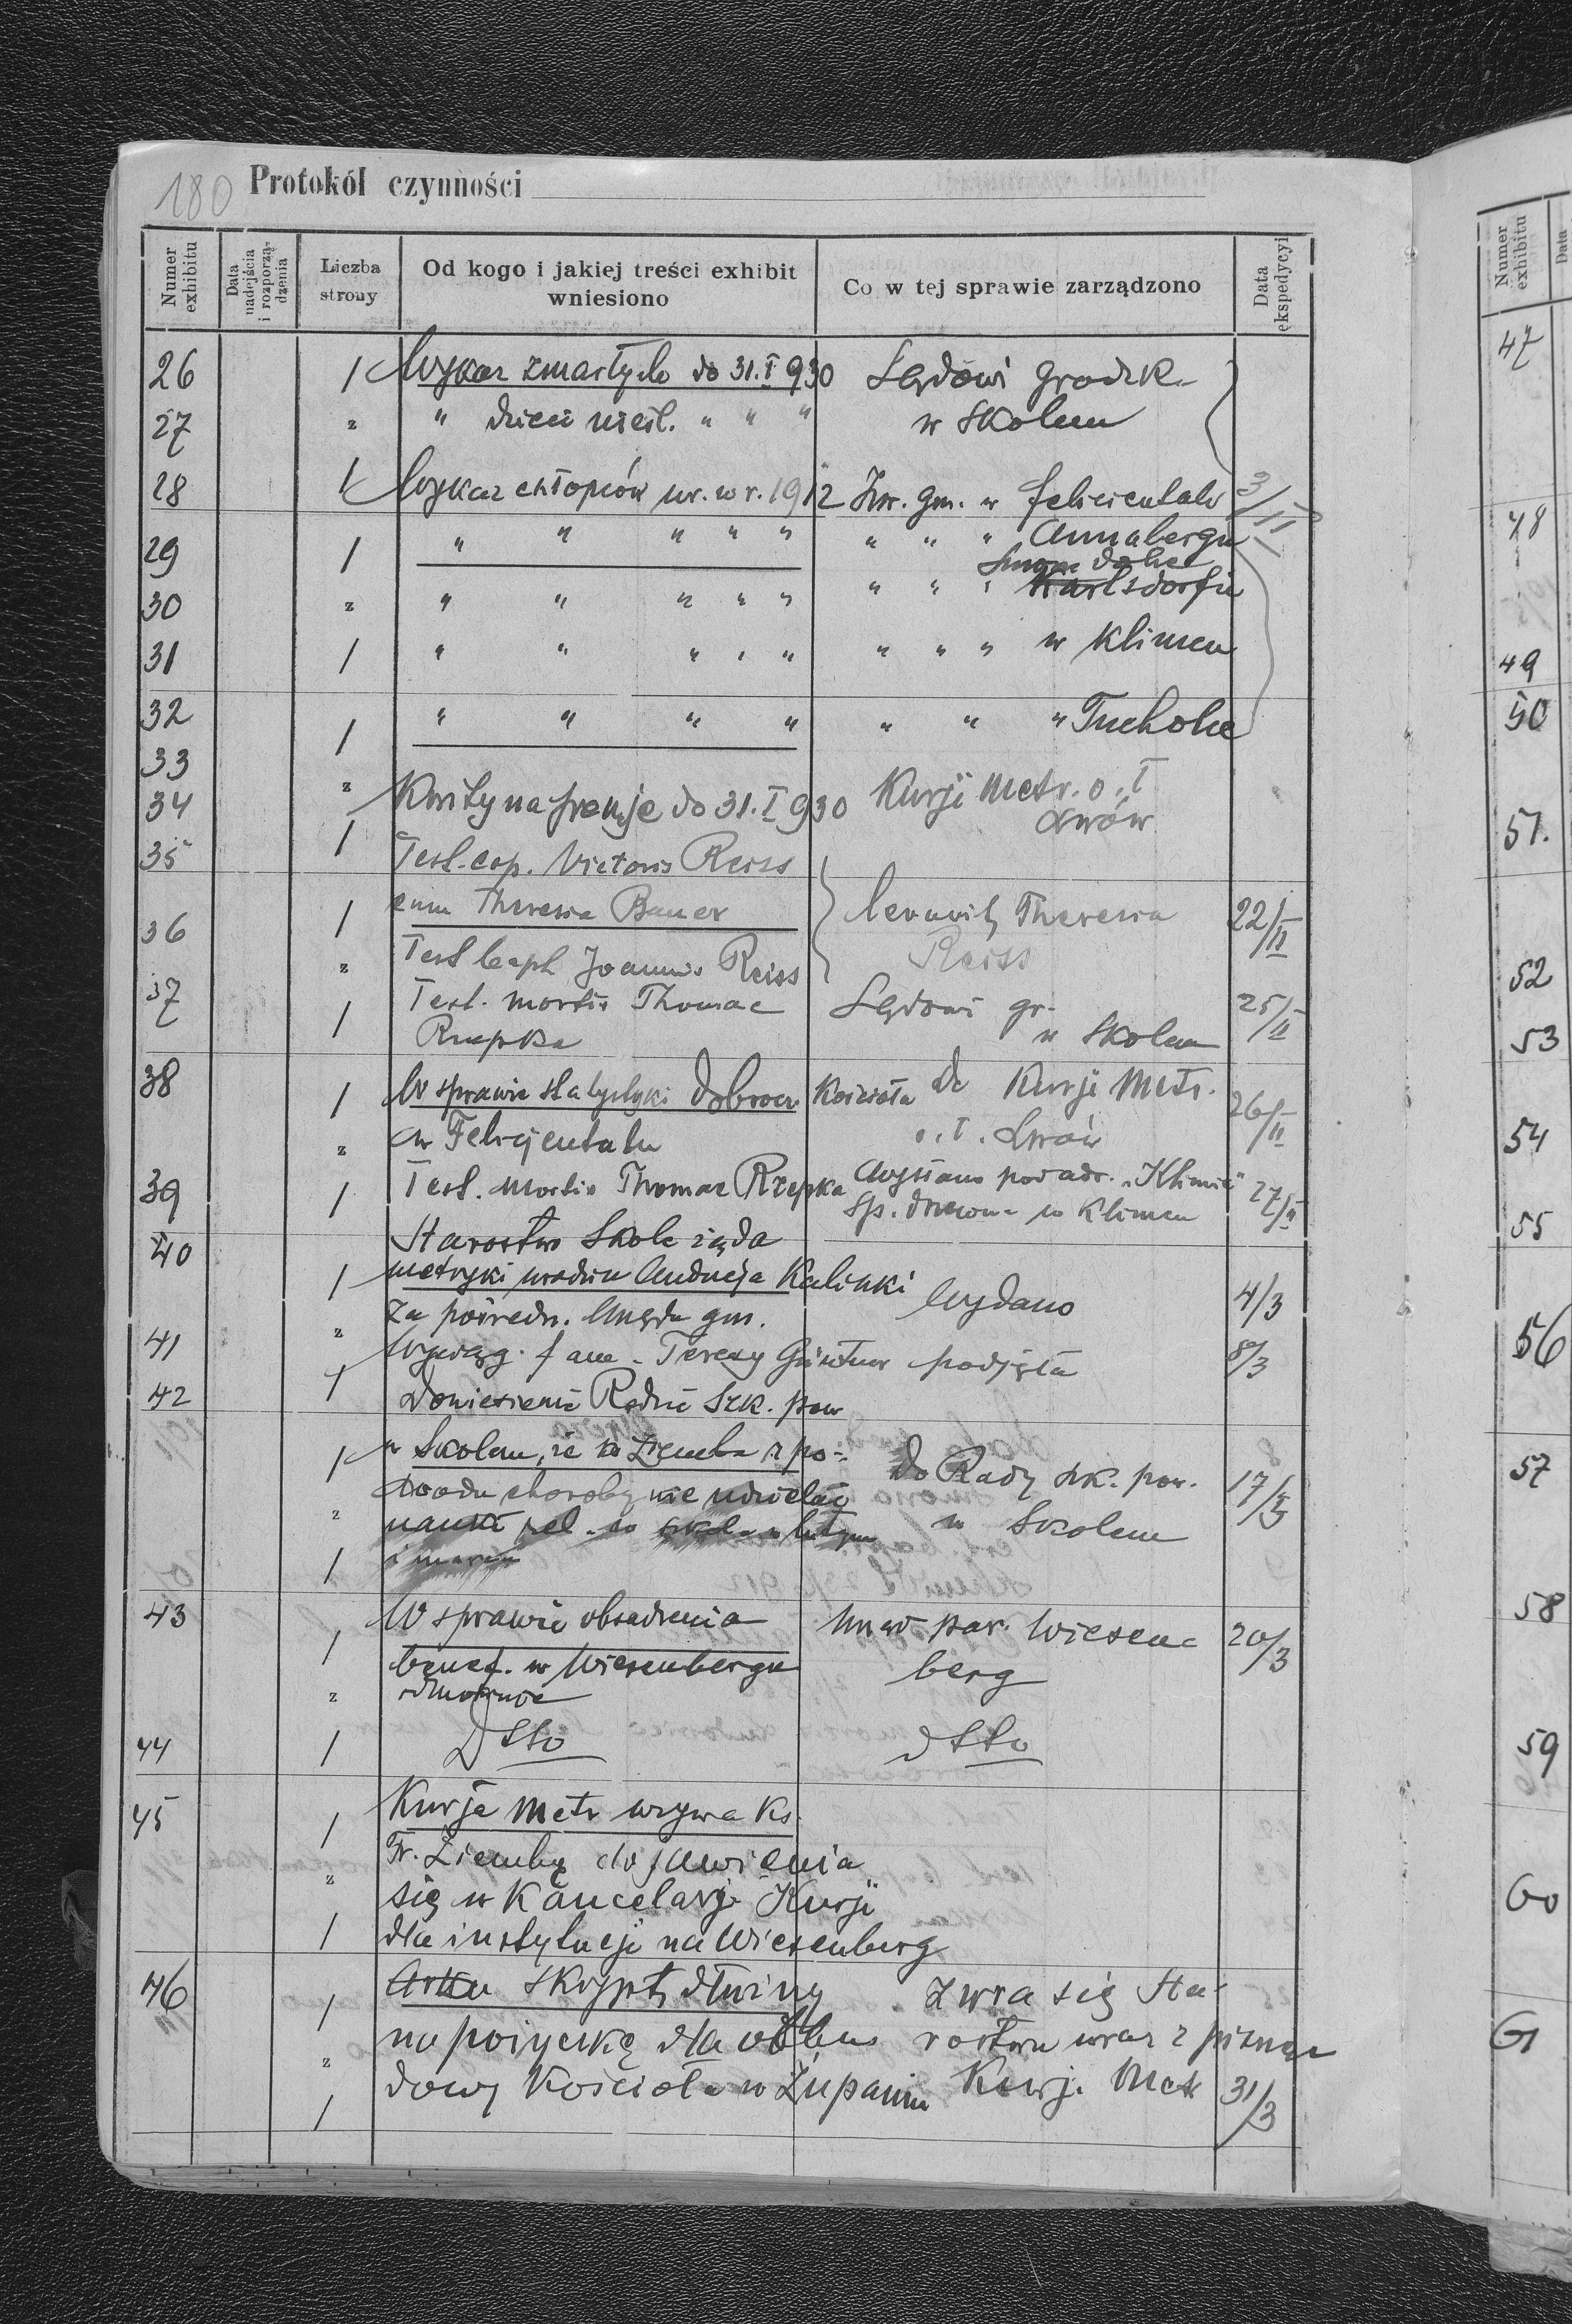 180 Protokół czynności
Numer exhibitu
Data nadejścia i rozporzą-dzenia
Liczba strony
Od kogo i jakiej treści exhibit wniesiono
Co w tej sprawie zarządzono
Data ekspedycyi
26 1 Wykaz zmarłych do 31.I 930 Sądowi grodzk.
27 " " dzieci nieśl. " " " w Skolem
28 1 Wykaz chłopców ur. w r. 1912 Zw. gm. w Felicientalu 3/II
29 1 " " " " " " " " Annabergu
Smorze dolne
30 " " " " " " " " " Karlsdorfie
31 1 " " " " " " " " w Klimcu
32 1 " " " " " " " Tucholce
33
34 " Kwity na pensje do 31.I 930 Kurji Metr. o. ł.
Lwów
35 1 Test. cop. Victoris Reiss
36 1 cum Theresia Bauer Theresia 22/II
" Test bapt Joannis Reiss Reiss
37 1 Test. mortis Thomae Sądowi gr. 25/II
Rzepka w Skolem
38 1 W sprawie statystyki dobrocz. Kościoła do Kurji Metr. 26/II
" w Felicjentalu o. ł. Lwów
39 1 Test. Mortis Thomae Rzepka Wysłano pod adr. "Klimiec" 27/II
Sp. drzewna w Klimcu
40 Starostwo Skole żąda
1 metryki urodzin Andrzeja Kalinki Wydano 4/3
" za pośredn. Urzędu gm.
41 1 Wyciąg. fam. Terezy Güntner podjęta 8/3
42 Doniesienie Radzie Szk. pow
1 w Skolem, że ks Ziemba z po-
wodu choroby nie udzielać do Rady szk. pow. 17/3
" nauki rel. w szkole w lutym w Skolem
1 i marcu
43 1 W sprawie obsadzenia Urząd par. Wiesen 20/3
benef. w Wiesenbergu berg
" odmownie
44 1 Dtto dtto
45 1 Kurja Metr wzywa Ks.
Fr. Ziembę do jawienia
" się w Kancelarji Kurji
1 dla instytucji na Wiesenberg
46 1 skrypt dłużny Zwra się Sta-
" na pożyczkę dla odbu rostwu wraz z pismem
1 dowy Kościoła w Żupaniu Kurj. Metr 31/3
Numer exhibitu
Data
47
48
49
50
51.
52
53
54
55
56
57
58
59
60
61